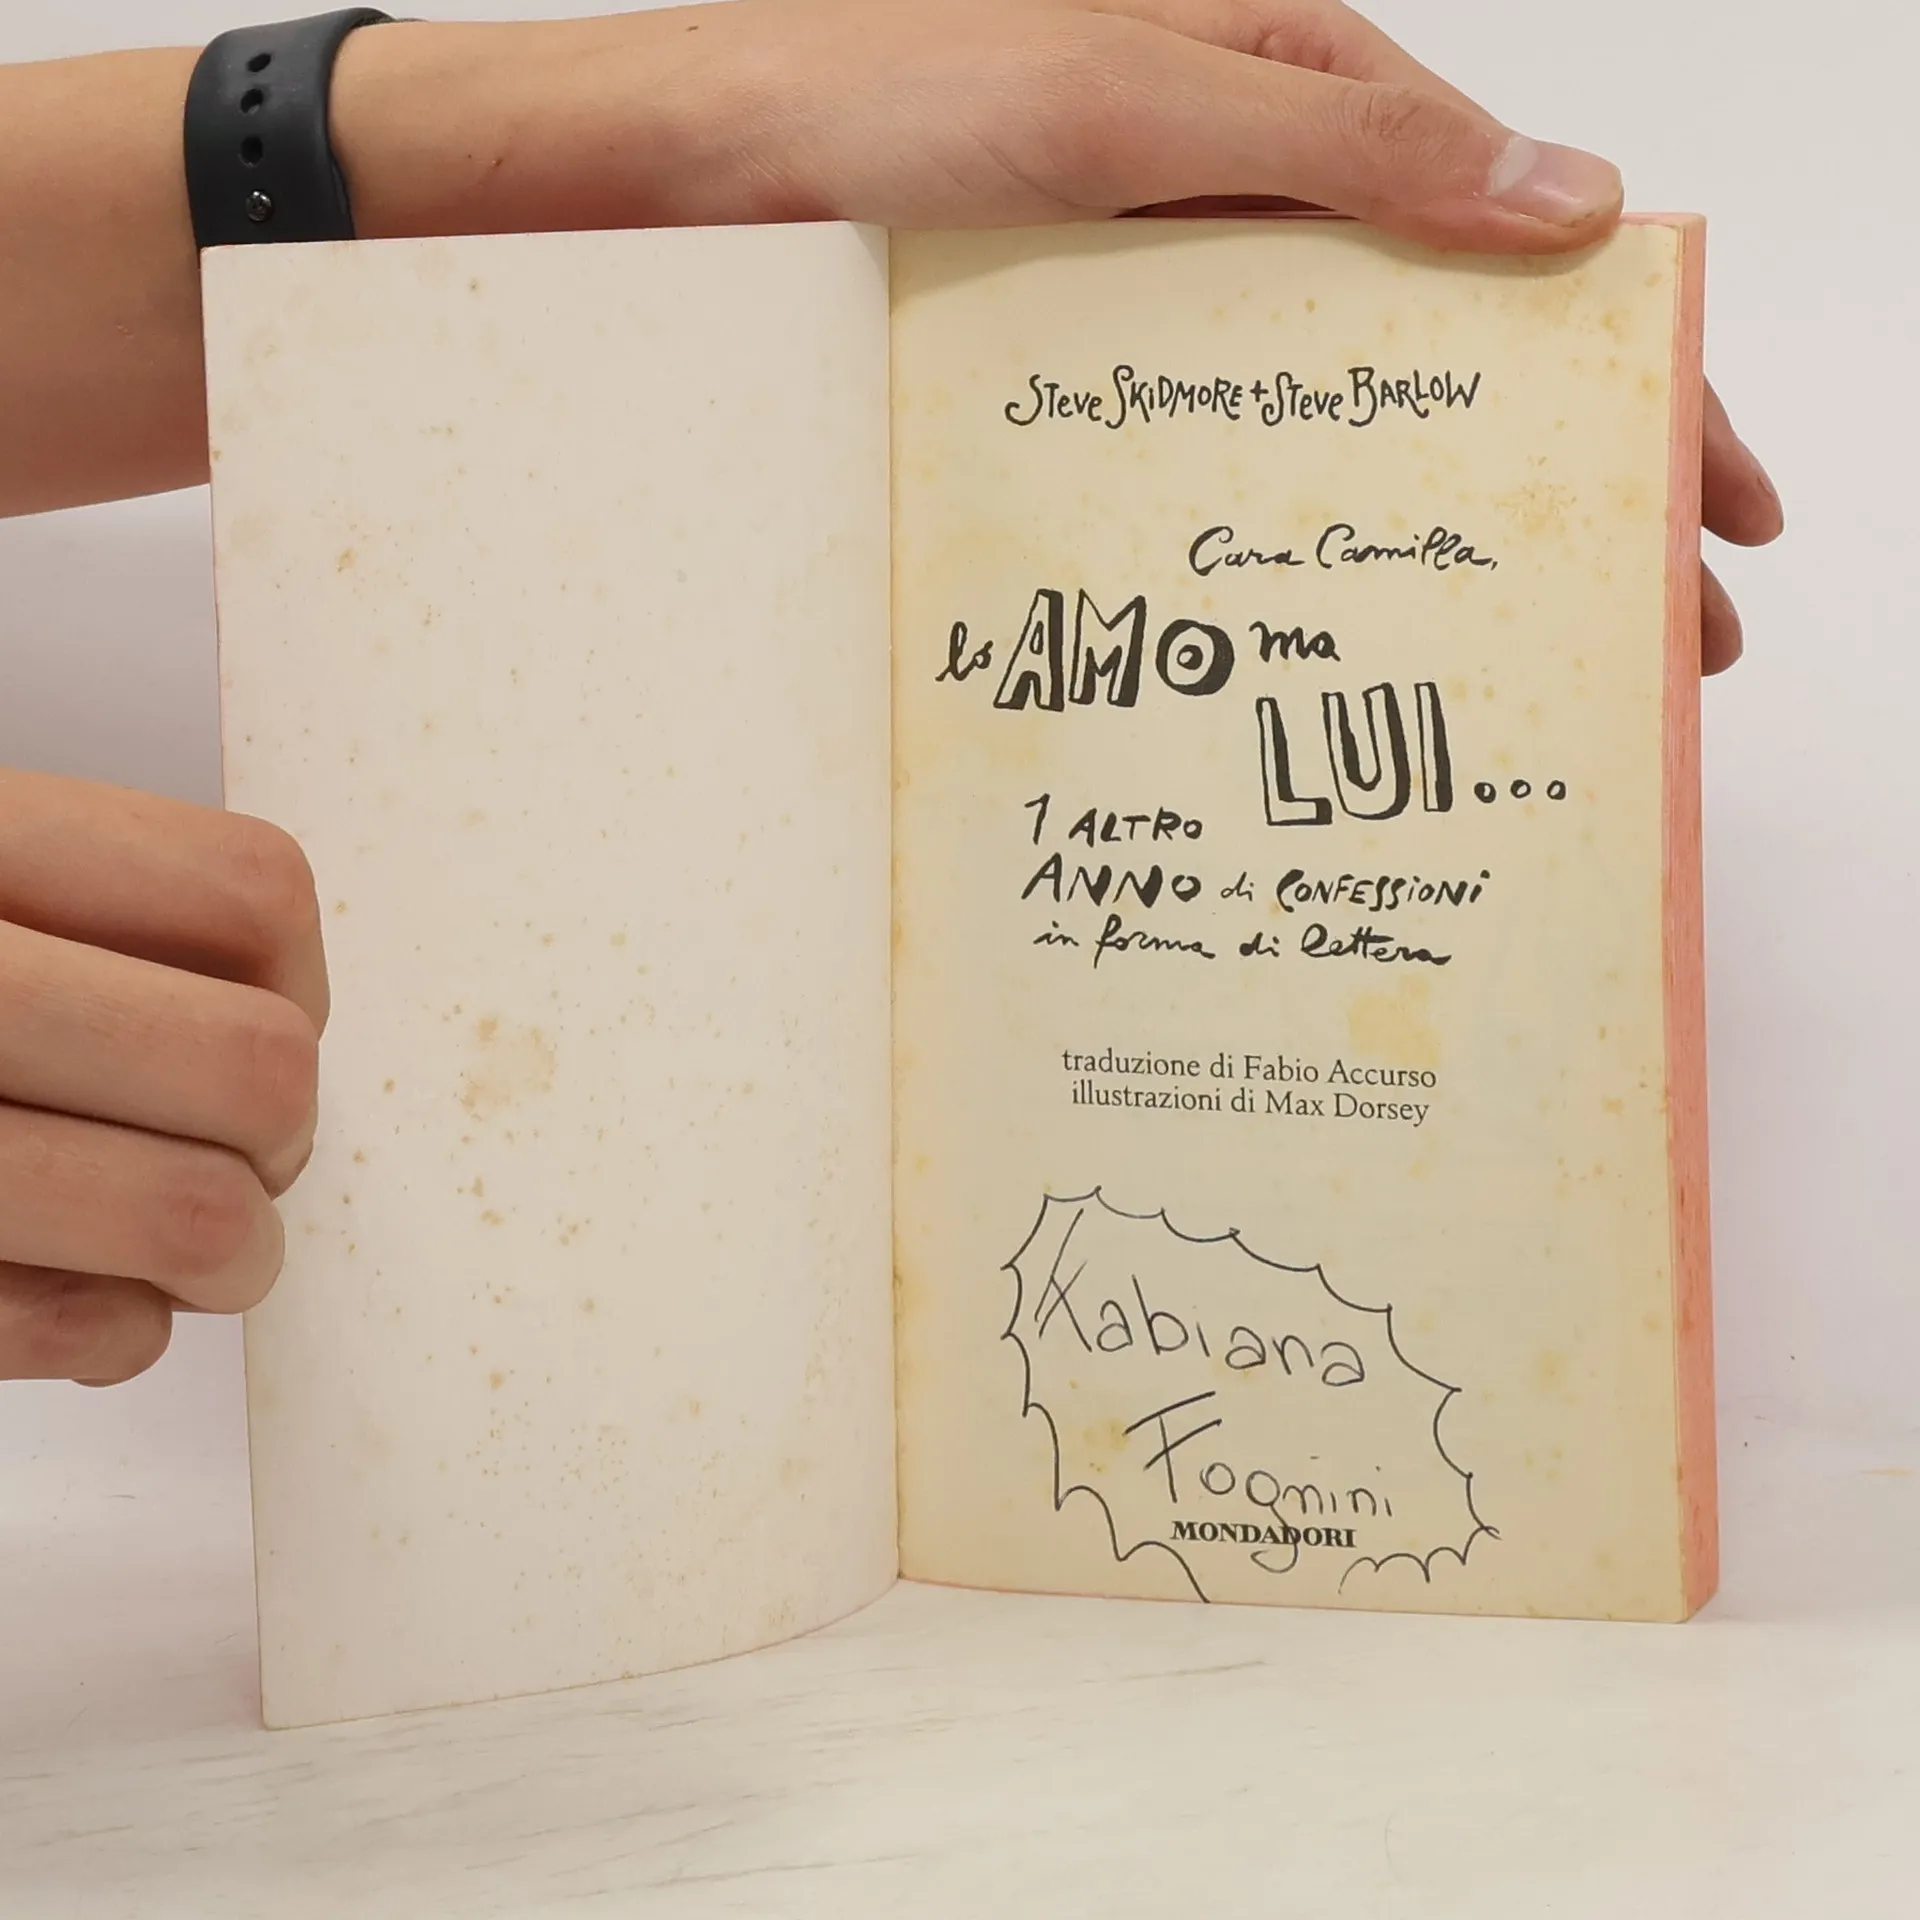 Steve Skidmore + Steve Barlow
Cara Camilla,
lo AMO ma
LUI...
1 ALTRO
ANNO di CONFESSIONI
in forma di lettera
traduzione di Fabio Accurso
illustrazioni di Max Dorsey
Fabiana
Fognini
MONDADORI